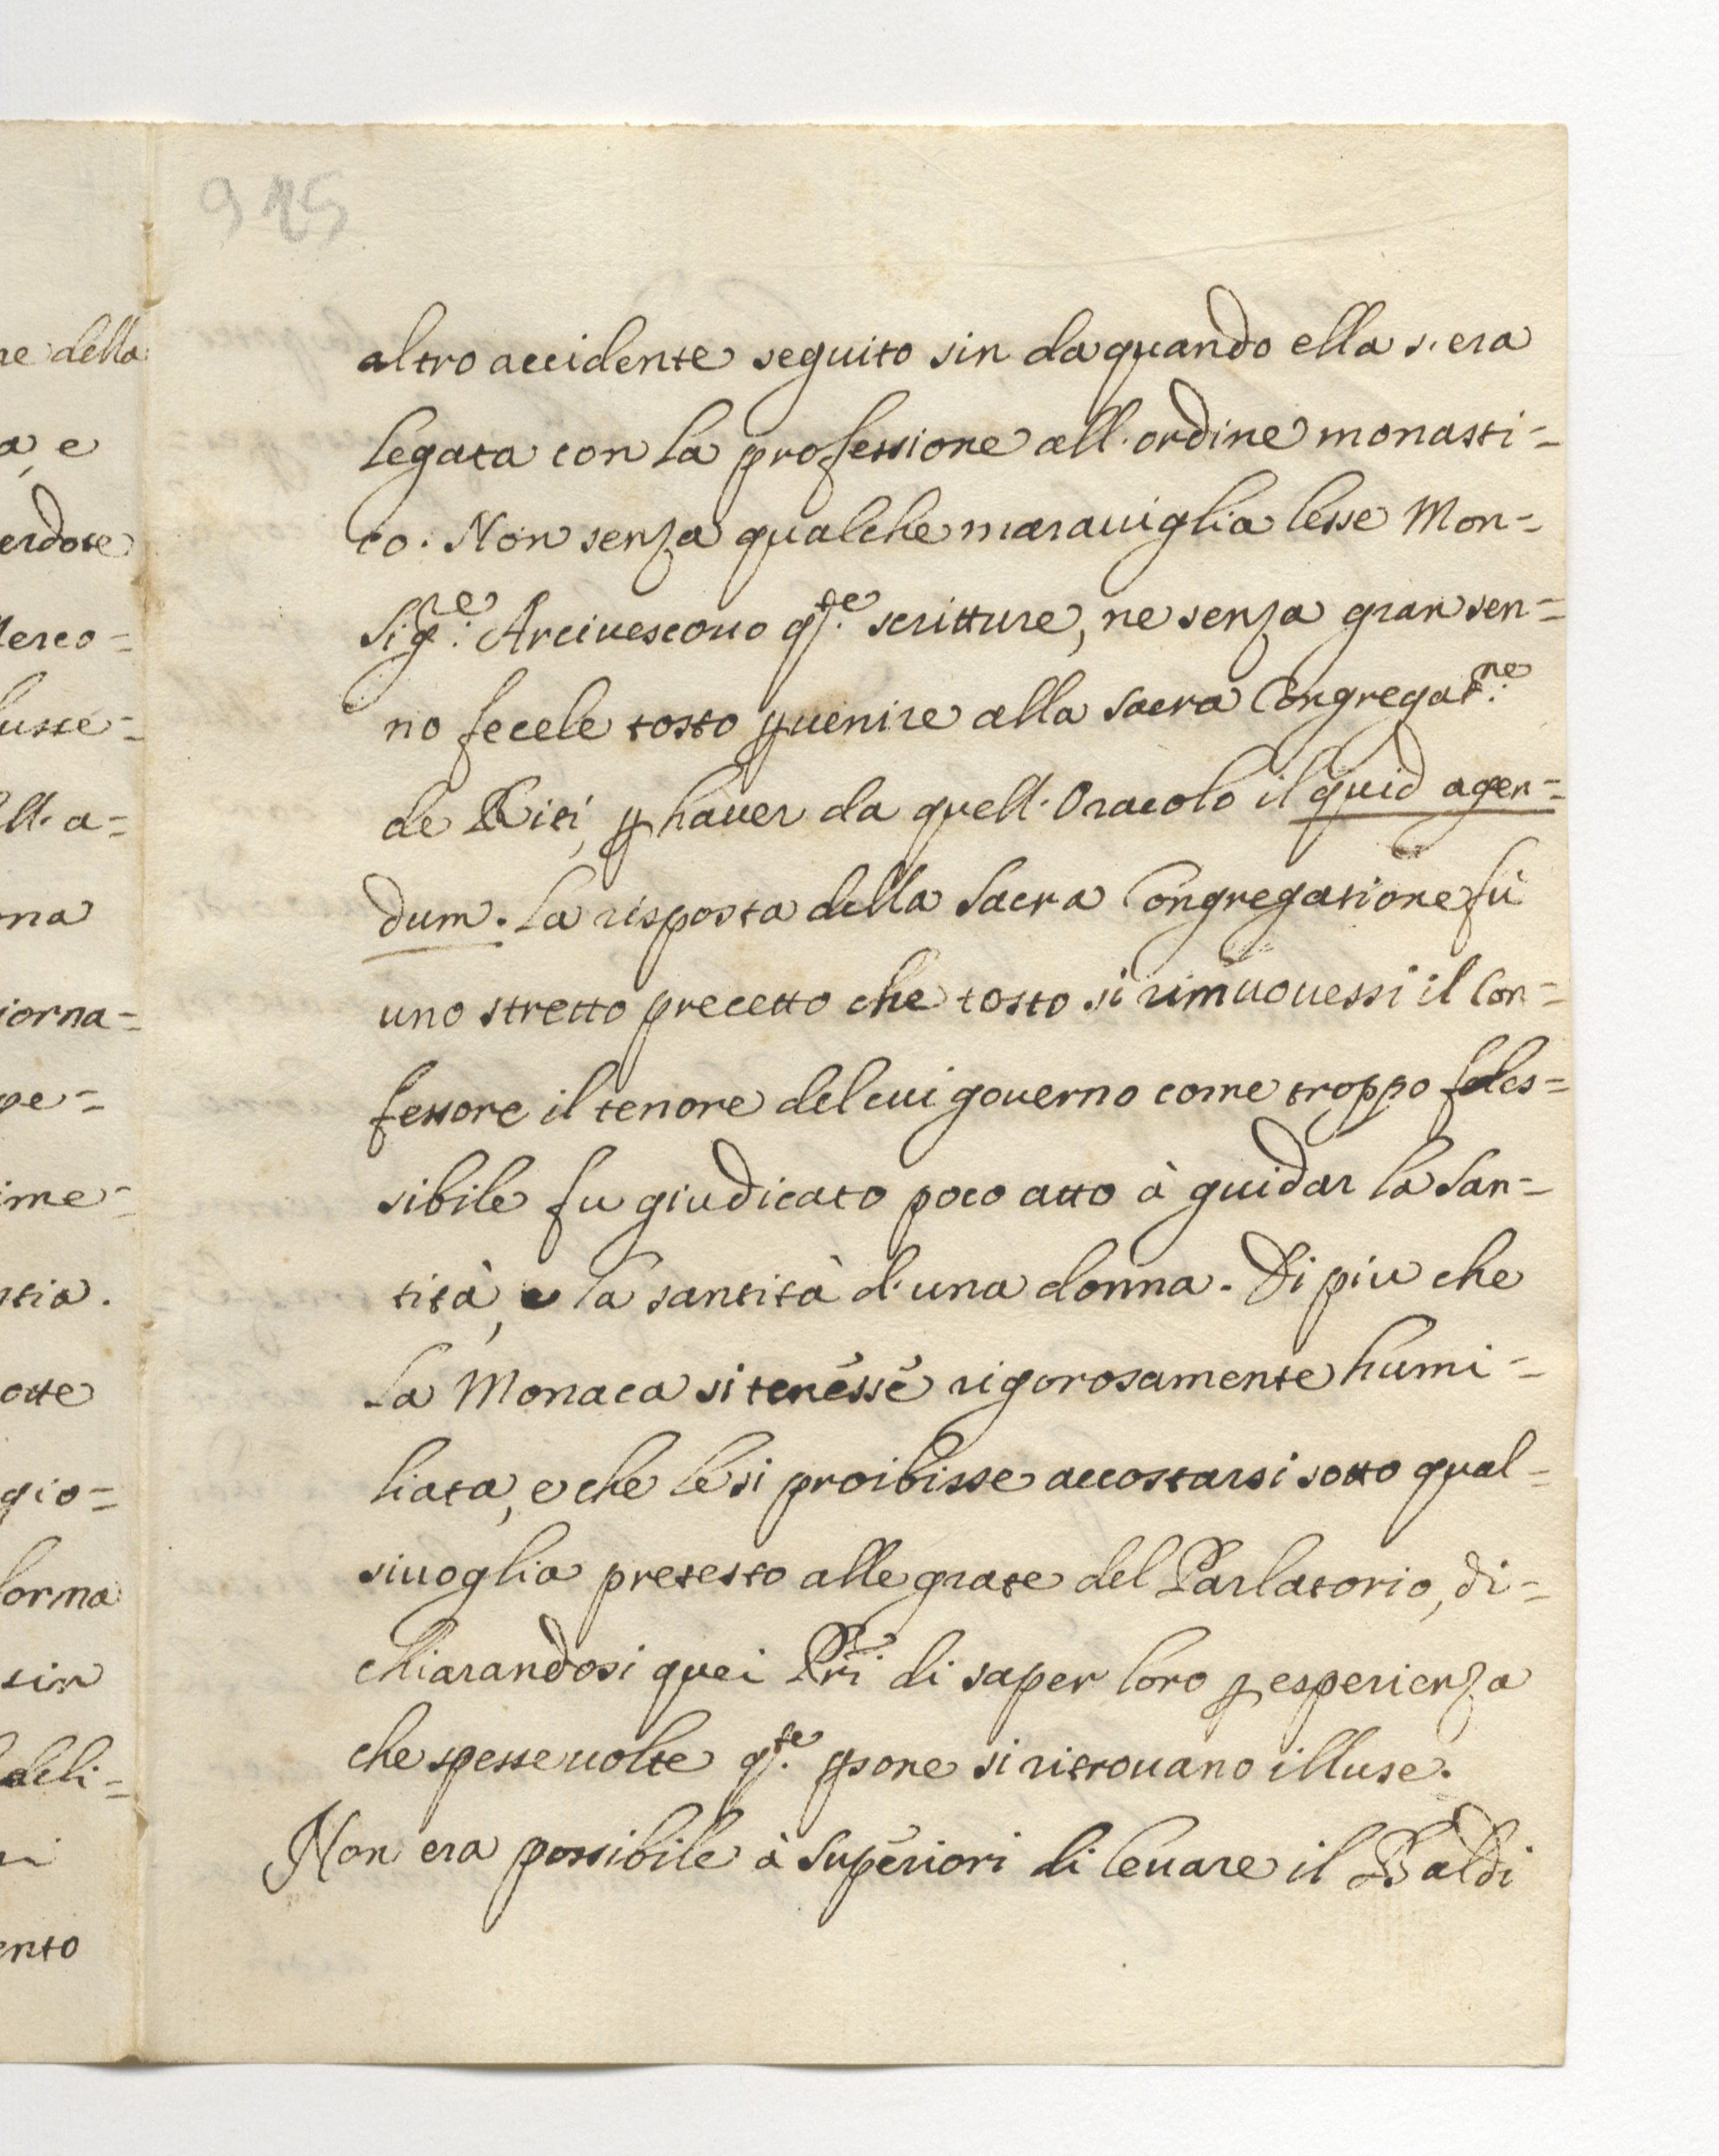 925
altro accidente seguito sin da quando ella s'era
legata con la professione all'ordine monasti=
co. Non senza qualche marauiglia lesse Mon=
Sig.re Arciuescouo q.te scritture, ne senza gran sen=
no fecele tosto ꝑuenire alla Sacra Congregat.ne
de Riti, ꝑ hauer da quell'Oracolo il quid agen=
dum. La risposta della Sacra Congregatione fù
uno stretto precetto che tosto si rimuouessi il Con=
fessore il tenore del cui gouerno come troppo fles=
sibile fu giudicato poco atto à guidar la San=
tità, e la santità d'una donna. Di piu che
la Monaca si tenesse rigorosamente humi=
liata, e che le si proibisse accostarsi sotto qual=
siuoglia pretesto alle grate del Parlatorio, di=
chiarandosi quei Pri di saper loro ꝑ esperienza
che spesse uolte q.te ꝑsone si ritrouano illuse.
Non era possibile à Superiori di leuare il Baldi
ne della
a, e
erdote
ll'a=
na
iorna=
pe=
ime=
otte
gio=
sin
ento